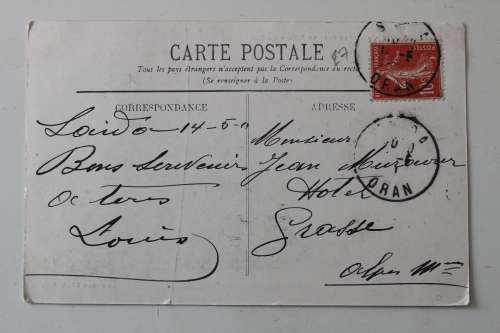 CARTE POSTALE
27
Tous les pays étrangers n'acceptent pas la Correspondance au recto
(Se renseigner à la Poste)
CORRESPONDANCE
ADRESSE
ORAN
ORAN
Saïda 14-5-11
Bons souvenirs
a tous
Louis
Monsieur
Jean
Hotel
Grasse
Alpes Mmes